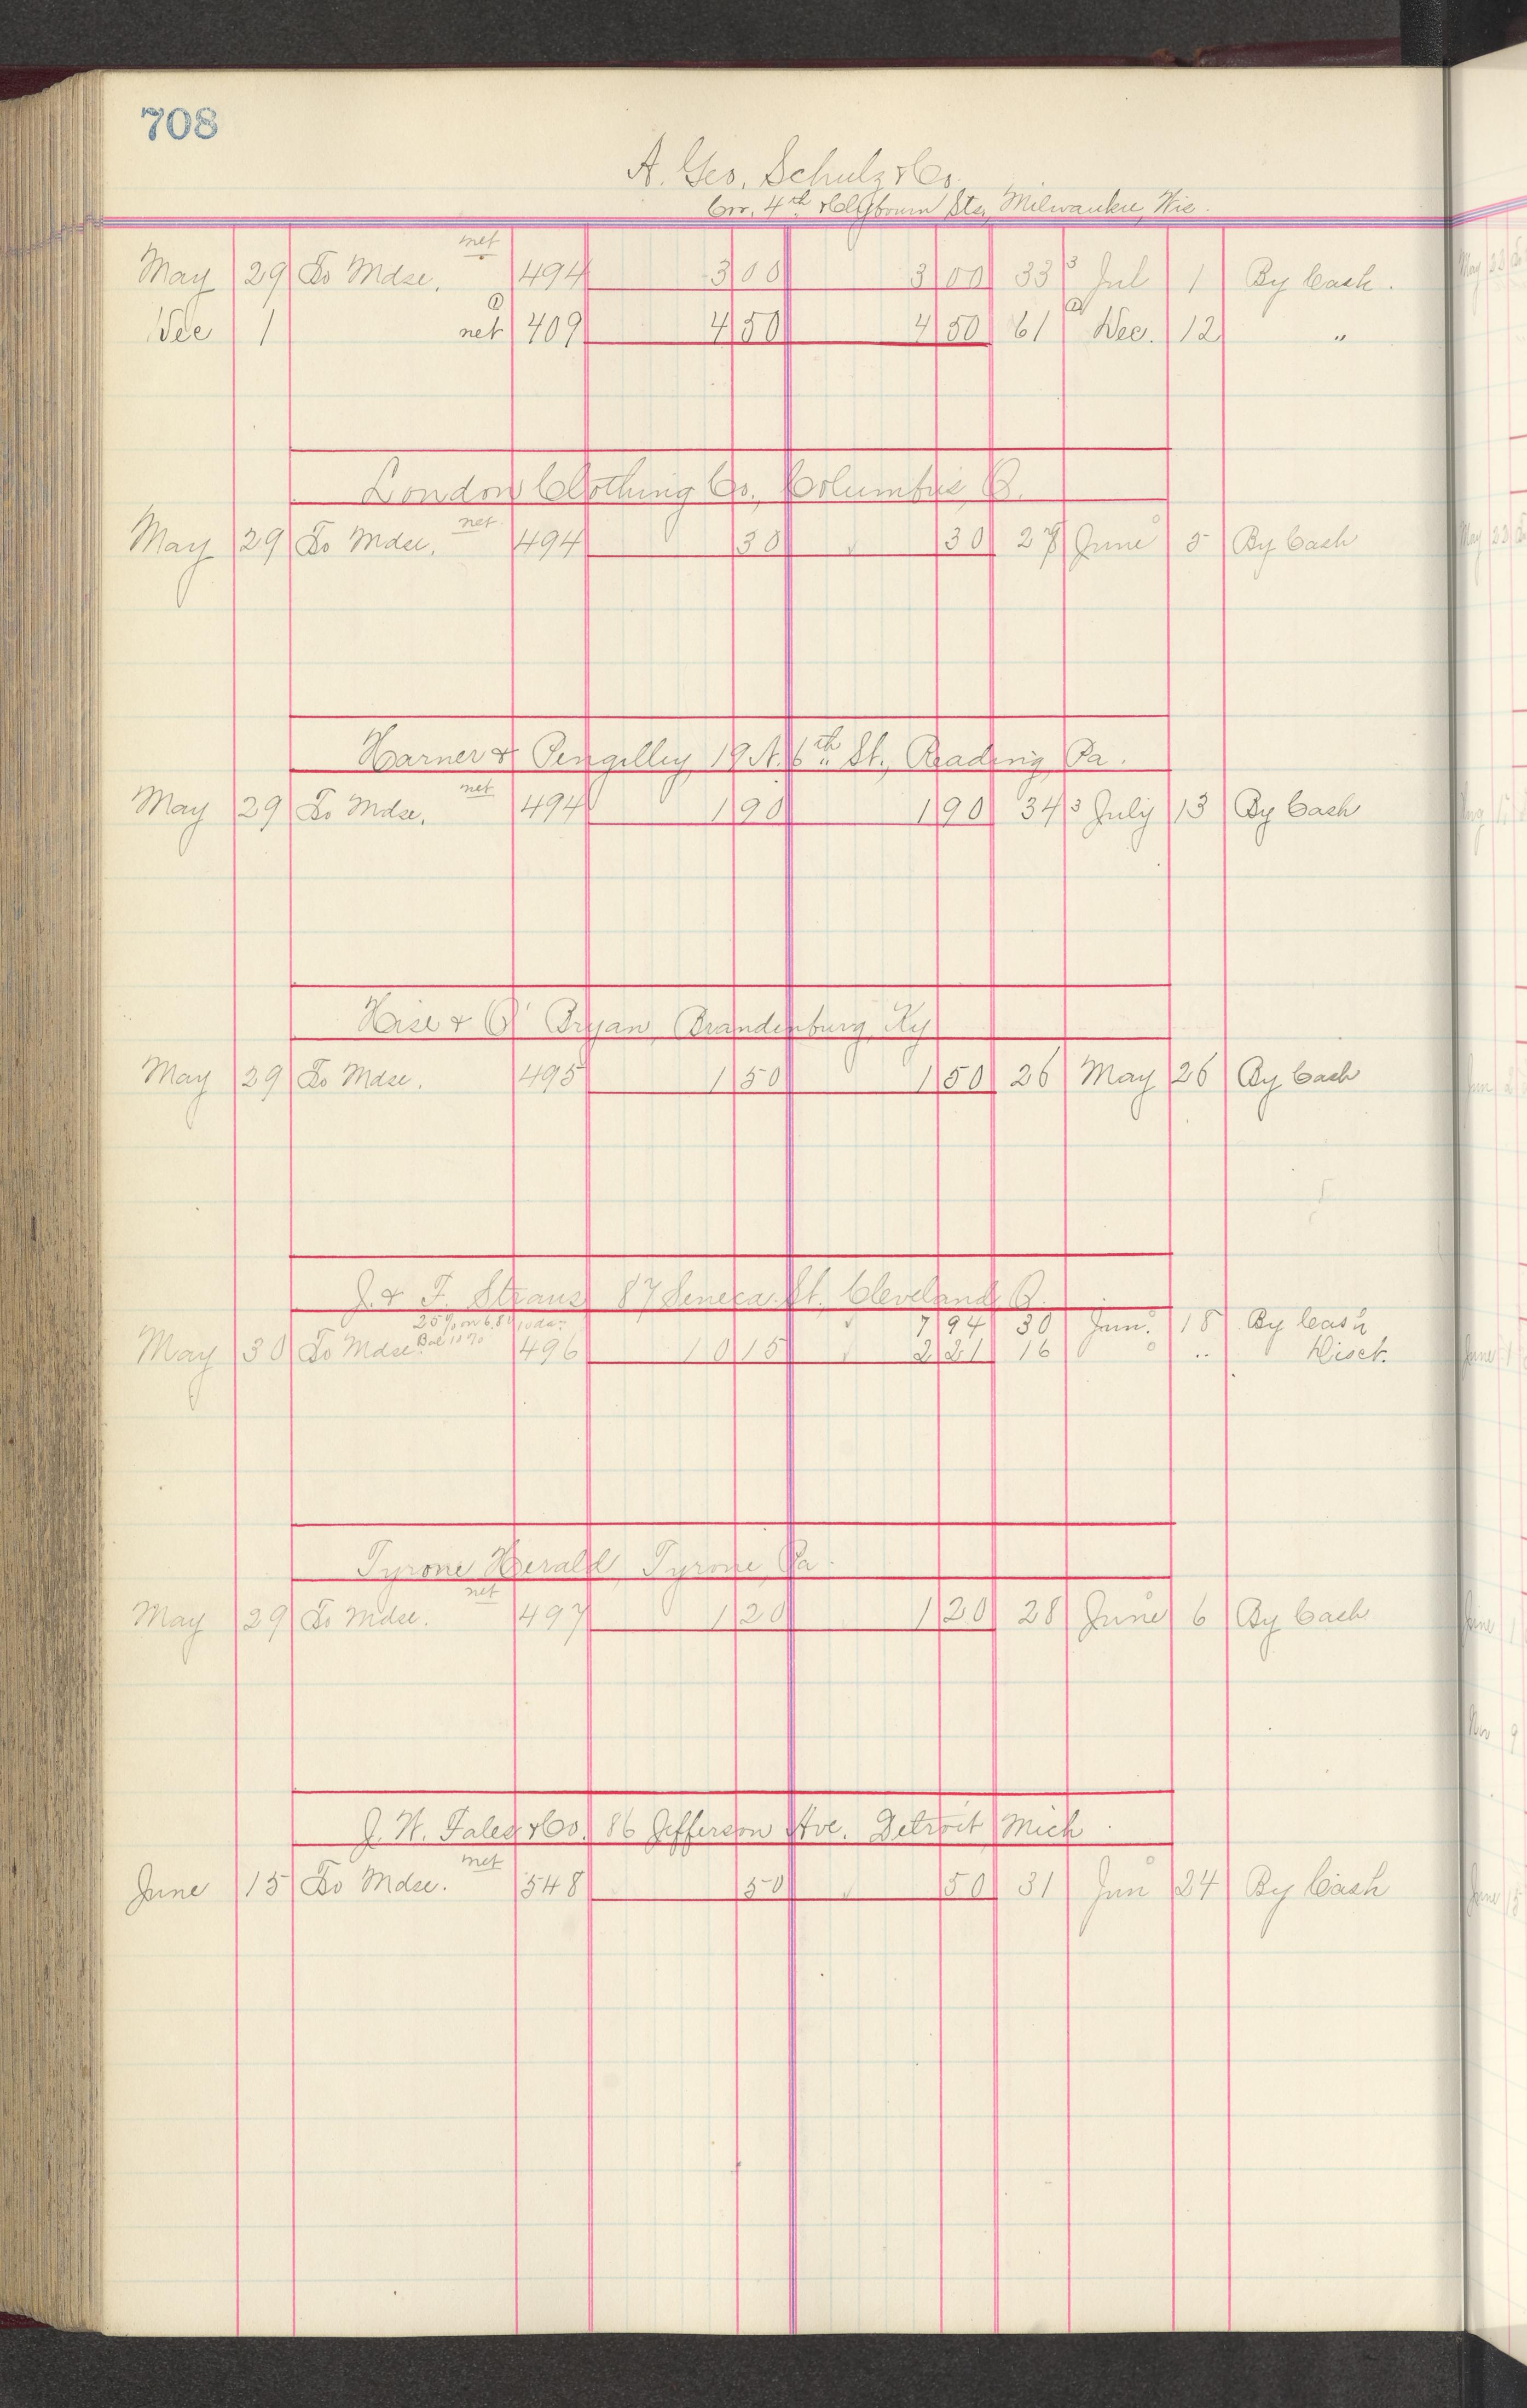 708
A. Geo. Schulz & Co.
Cor. 4th & Clybourn Sts, Milwaukie, Wis.
net
May 29 To Mdse. 494 3 00 3 00 33 3 Jul 1 By Cash.
Dec 1 net 409 4 50 4 50 61 Dec. 12 "
London Clothing Co., Columbus, O.
May 29 To Mdse, net 494 30 30 27 June 5 By Cash
Harner & Pengilley 19 N. 6th St., Reading, Pa.
May 29 To Mdse, net 494 1 90 1 90 34 3 July 13 By Cash
Hise & O' Bryan, Brandenburg, Ky
May 29 To Mdse. 495 1 50 1 50 26 May 26 By Cash
J. & F. Straus 87 Seneca St., Cleveland O.
25% on 6.84 10 das. 7 94 30 Jun. 18 By Cash
May 30 To Mdse. Bal 10% 496 10 15 2 21 16 " Disct.
Tyrone Herald, Tyrone, Pa.
May 29 To Mdse. net 497 1 20 1 20 28 June 6 By Cash
J. W. Fales & Co. 86 Jefferson Ave. Detroit Mich
June 15 To Mdse. net 548 50 50 31 Jun 24 By Cash